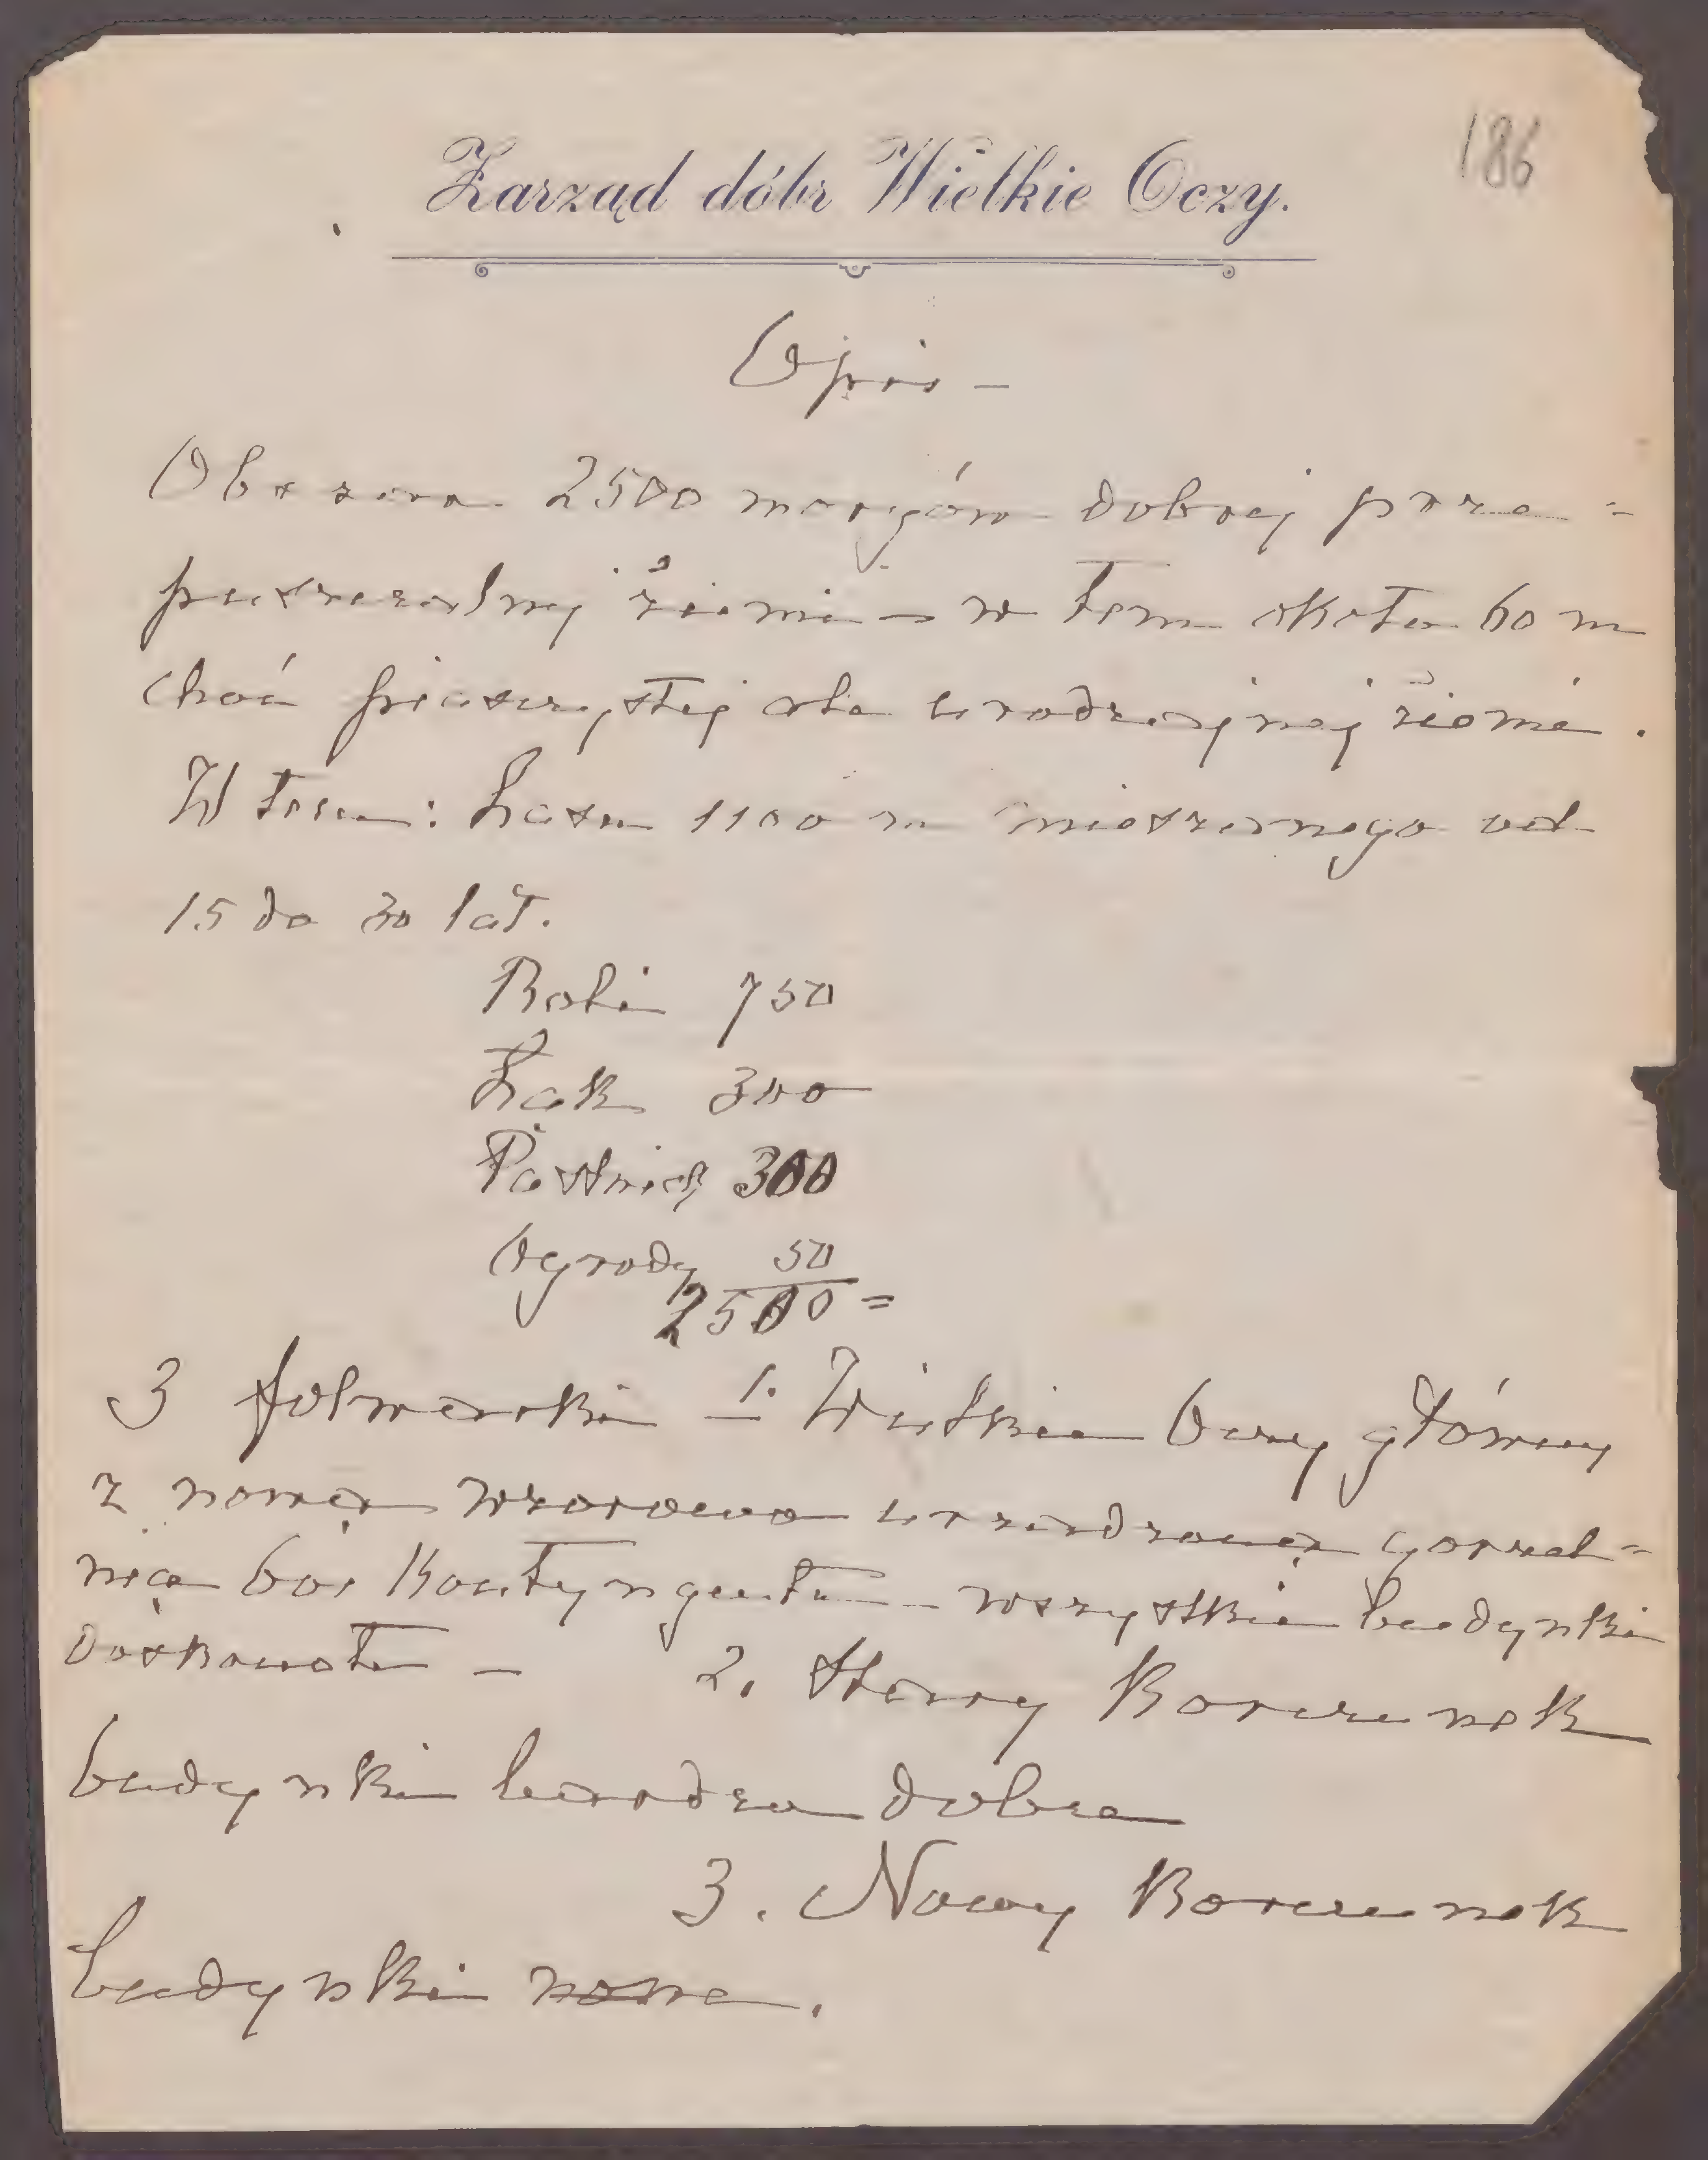 186
Zarząd dóbr Wielkie Oczy.
Opis –
Obszar 2500 morgów dobrej prze=
puszczalnej ziemi – w tem około 60 m
choć piaszczystej ale urodzajnej ziemi.
W tem: Lasu 1100 m mieszanego od
15 do 30 lat.
Roli 750
Łąk 300
Pastwisk 300
Ogrody 50
2500=
3 folwarki – 1. Wielkie Oczy główny
z nową wzorowo urządzoną gorzel=
nią kontyngentu – wszystkie budynki
doskonałe – 2. Stary
budynki bardzo dobre
3. Nowy
budynki nowe.